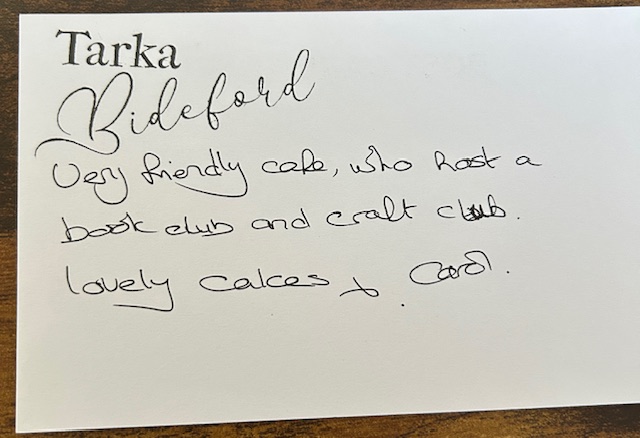 Tarka
Bideford
Very friendly cafe, who host a
book club and craft club.
lovely cakes x Carol.